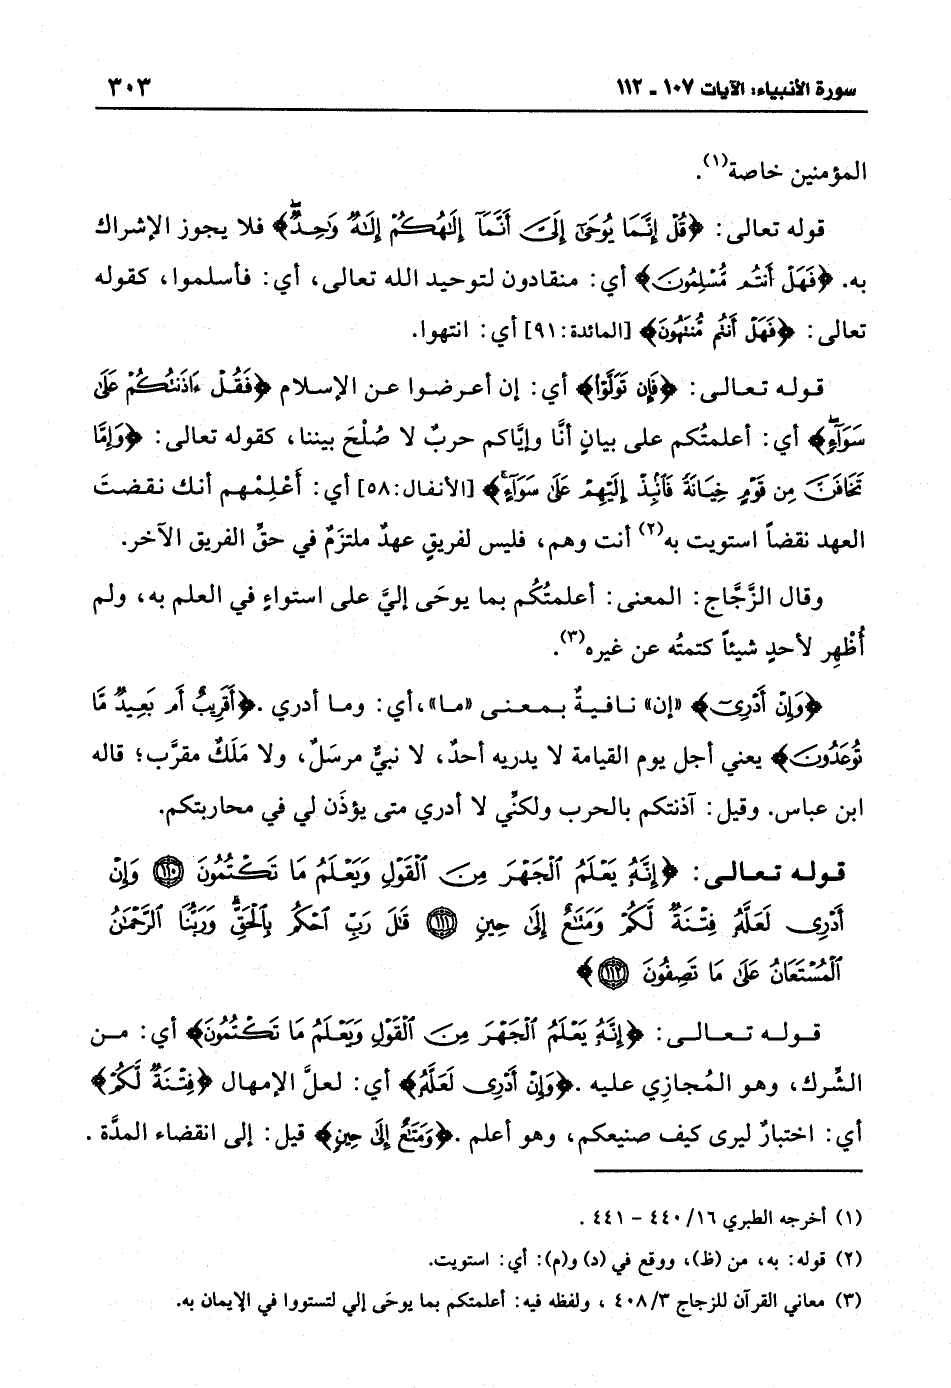 سورة الأنبياء: الآيات ١٠٧ ـ ١١٢ ٣٠٣
المؤمنين خاصة(١).
قوله تعالى: ﴿قُلْ إِنَّمَا يُوحَىٰ إِلَىَّ أَنَّمَآ إِلَٰهُكُمْ إِلَٰهٌ وَٰحِدٌ﴾ فلا يجوز الإشراك
به. ﴿فَهَلْ أَنتُم مُّسْلِمُونَ﴾ أي: منقادون لتوحيد الله تعالى، أي: فأسلموا، كقوله
تعالى: ﴿فَهَلْ أَنتُم مُّنتَهُونَ﴾ [المائدة: ٩١] أي: انتهوا.
قوله تعالى: ﴿فَإِن تَوَلَّوْا﴾ أي: إن أعرضوا عن الإسلام ﴿فَقُلْ ءَاذَنتُكُمْ عَلَىٰ
سَوَآءٍ﴾ أي: أعلمتُكم على بيانٍ أنَّا وإيَّاكم حربٌ لا صُلْحَ بيننا، كقوله تعالى: ﴿وَإِمَّا
تَخَافَنَّ مِن قَوْمٍ خِيَانَةً فَٱنۢبِذْ إِلَيْهِمْ عَلَىٰ سَوَآءٍ﴾ [الأنفال: ٥٨] أي: أَعْلِمْهم أنك نقضتَ
العهد نقضاً استويت به(٢) أنت وهم، فليس لفريقٍ عهدٌ ملتزَمٌ في حقِّ الفريق الآخر.
وقال الزَّجَّاج: المعنى: أعلمتُكُم بما يوحَى إليَّ على استواءٍ في العلم به، ولم
أُظْهِر لأحدٍ شيئاً كتمتُه عن غيره(٣).
﴿وَإِنْ أَدْرِىٓ﴾ «إن» نافيةٌ بمعنى «ما»، أي: وما أدري. ﴿أَقَرِيبٌ أَم بَعِيدٌ مَّا
تُوعَدُونَ﴾ يعني أجل يوم القيامة لا يدريه أحدٌ، لا نبيٌّ مرسَلٌ، ولا مَلَكٌ مقرَّب؛ قاله
ابن عباس. وقيل: آذنتكم بالحرب ولكنِّي لا أدري متى يؤذَن لي في محاربتكم.
قوله تعالى: ﴿إِنَّهُۥ يَعْلَمُ ٱلْجَهْرَ مِنَ ٱلْقَوْلِ وَيَعْلَمُ مَا تَكْتُمُونَ ١١٠ وَإِنْ
أَدْرِى لَعَلَّهُۥ فِتْنَةٌ لَّكُمْ وَمَتَٰعٌ إِلَىٰ حِينٍ ١١١ قَٰلَ رَبِّ ٱحْكُم بِٱلْحَقِّ وَرَبُّنَا ٱلرَّحْمَٰنُ
ٱلْمُسْتَعَانُ عَلَىٰ مَا تَصِفُونَ ١١٢﴾
قوله تعالى: ﴿إِنَّهُۥ يَعْلَمُ ٱلْجَهْرَ مِنَ ٱلْقَوْلِ وَيَعْلَمُ مَا تَكْتُمُونَ﴾ أي: من
الشِّرك، وهو المُجازِي عليه. ﴿وَإِنْ أَدْرِى لَعَلَّهُۥ﴾ أي: لعلَّ الإمهال ﴿فِتْنَةٌ لَّكُمْ﴾
أي: اختبارٌ ليرى كيف صنيعكم، وهو أعلم. ﴿وَمَتَٰعٌ إِلَىٰ حِينٍ﴾ قيل: إلى انقضاء المدَّة.
(١) أخرجه الطبري ١٦/ ٤٤٠ - ٤٤١.
(٢) قوله: به، من (ظ)، ووقع في (د) و(م): أي: استويت.
(٣) معاني القرآن للزجاج ٣/ ٤٠٨، ولفظه فيه: أعلمتكم بما يوحَى إلي لتستووا في الإيمان به.